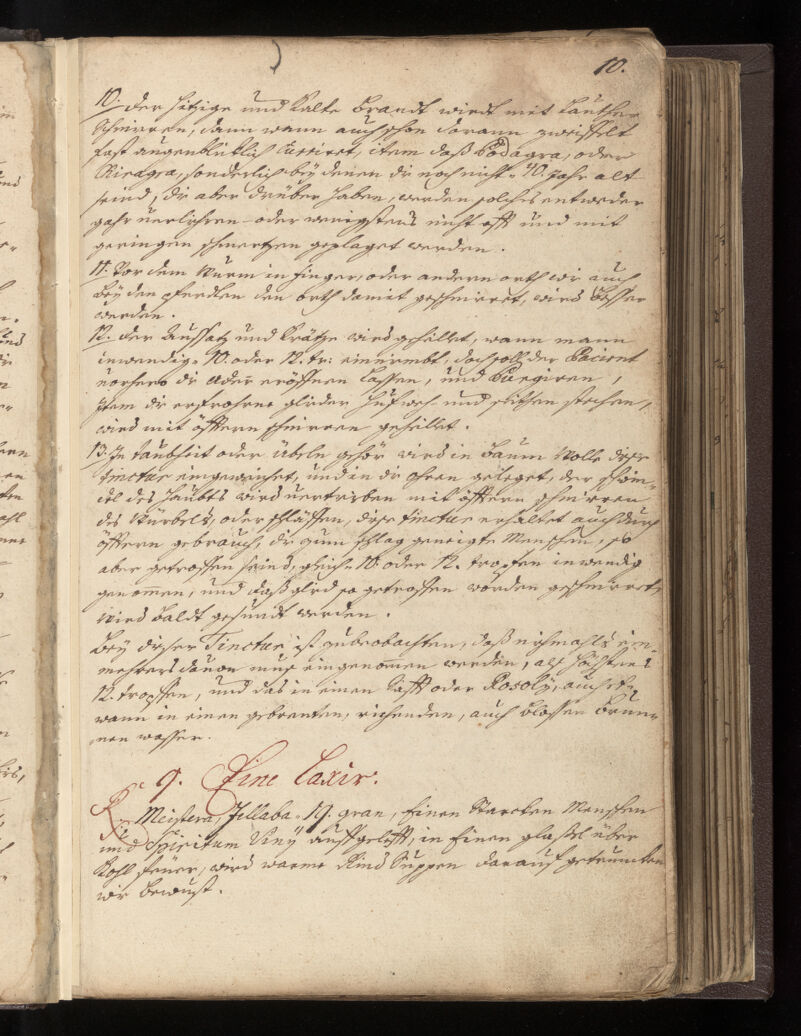 10.
10. Der hitzige und Kalte Brandt wirdt mit lauther
schmirren, dann wann auch schon daran zweiffelt
fast augenbliklich Curieret, item daß Podagra, oder
Chiragra, sonderlich bey denen die noch nicht 40. Jahr alt
seind, die aber drüber haben, werden solches entweder
gahr verliehren oder wenigstens nicht offt und mit
geringen schmertzen geplaget werden.
11. Vor dem Wurm in finger, oder andern orth wie auch
bey den pferdten den orth damit geschmirret, wird besser
werden.
12. Der Aussatz und Krätze wird geheillet, wann mann
inwendig 10. oder 12. tr: einnimbt, doch soll der Pacient
vorhero die Adern eröffnen lassen, und Purgiren,
Item die erfrohrne glieder hufweh und seithen stechen,
wird mit öffterm schmirren geheillet.
13. In taubheit oder übeln gehör wird in baum Wolle diese
tinctur eingeweichet, und in die ohren geleget, der schwin-
del des haubts wird vertrieben mit öfftern schmirren
des Würbels, oder schläffen, diese tinctur erhaltet auch durch
öfftern gebrauch, die zum schlag geneigte Menschen, so
aber getroffen seind, gleich 10. oder 12. tropfen inwendig
genomen, und daß glied so getroffen worden geschmirret,
wird baldt gesundt werden.
Bey dieser Tinctur ist zu beobachten, daß niehmahls ein
mehrers davon muß eingenomen werden, als höchstens
12. tropffen, und das in einen Safft oder Rosoly, auch et-
wann in einen gebrenten, riehenden, auch blossen brun-
nen wasser.
9. Eine Laxir.
Rc Meistera, Jillaba 19. gran, Einen Starcken Menschen
und Spiritum Viny auffgelöst, in Einen glaßel über
Kohl feüer, wird warme Rind Suppen darauf getruncken
wie bewust.